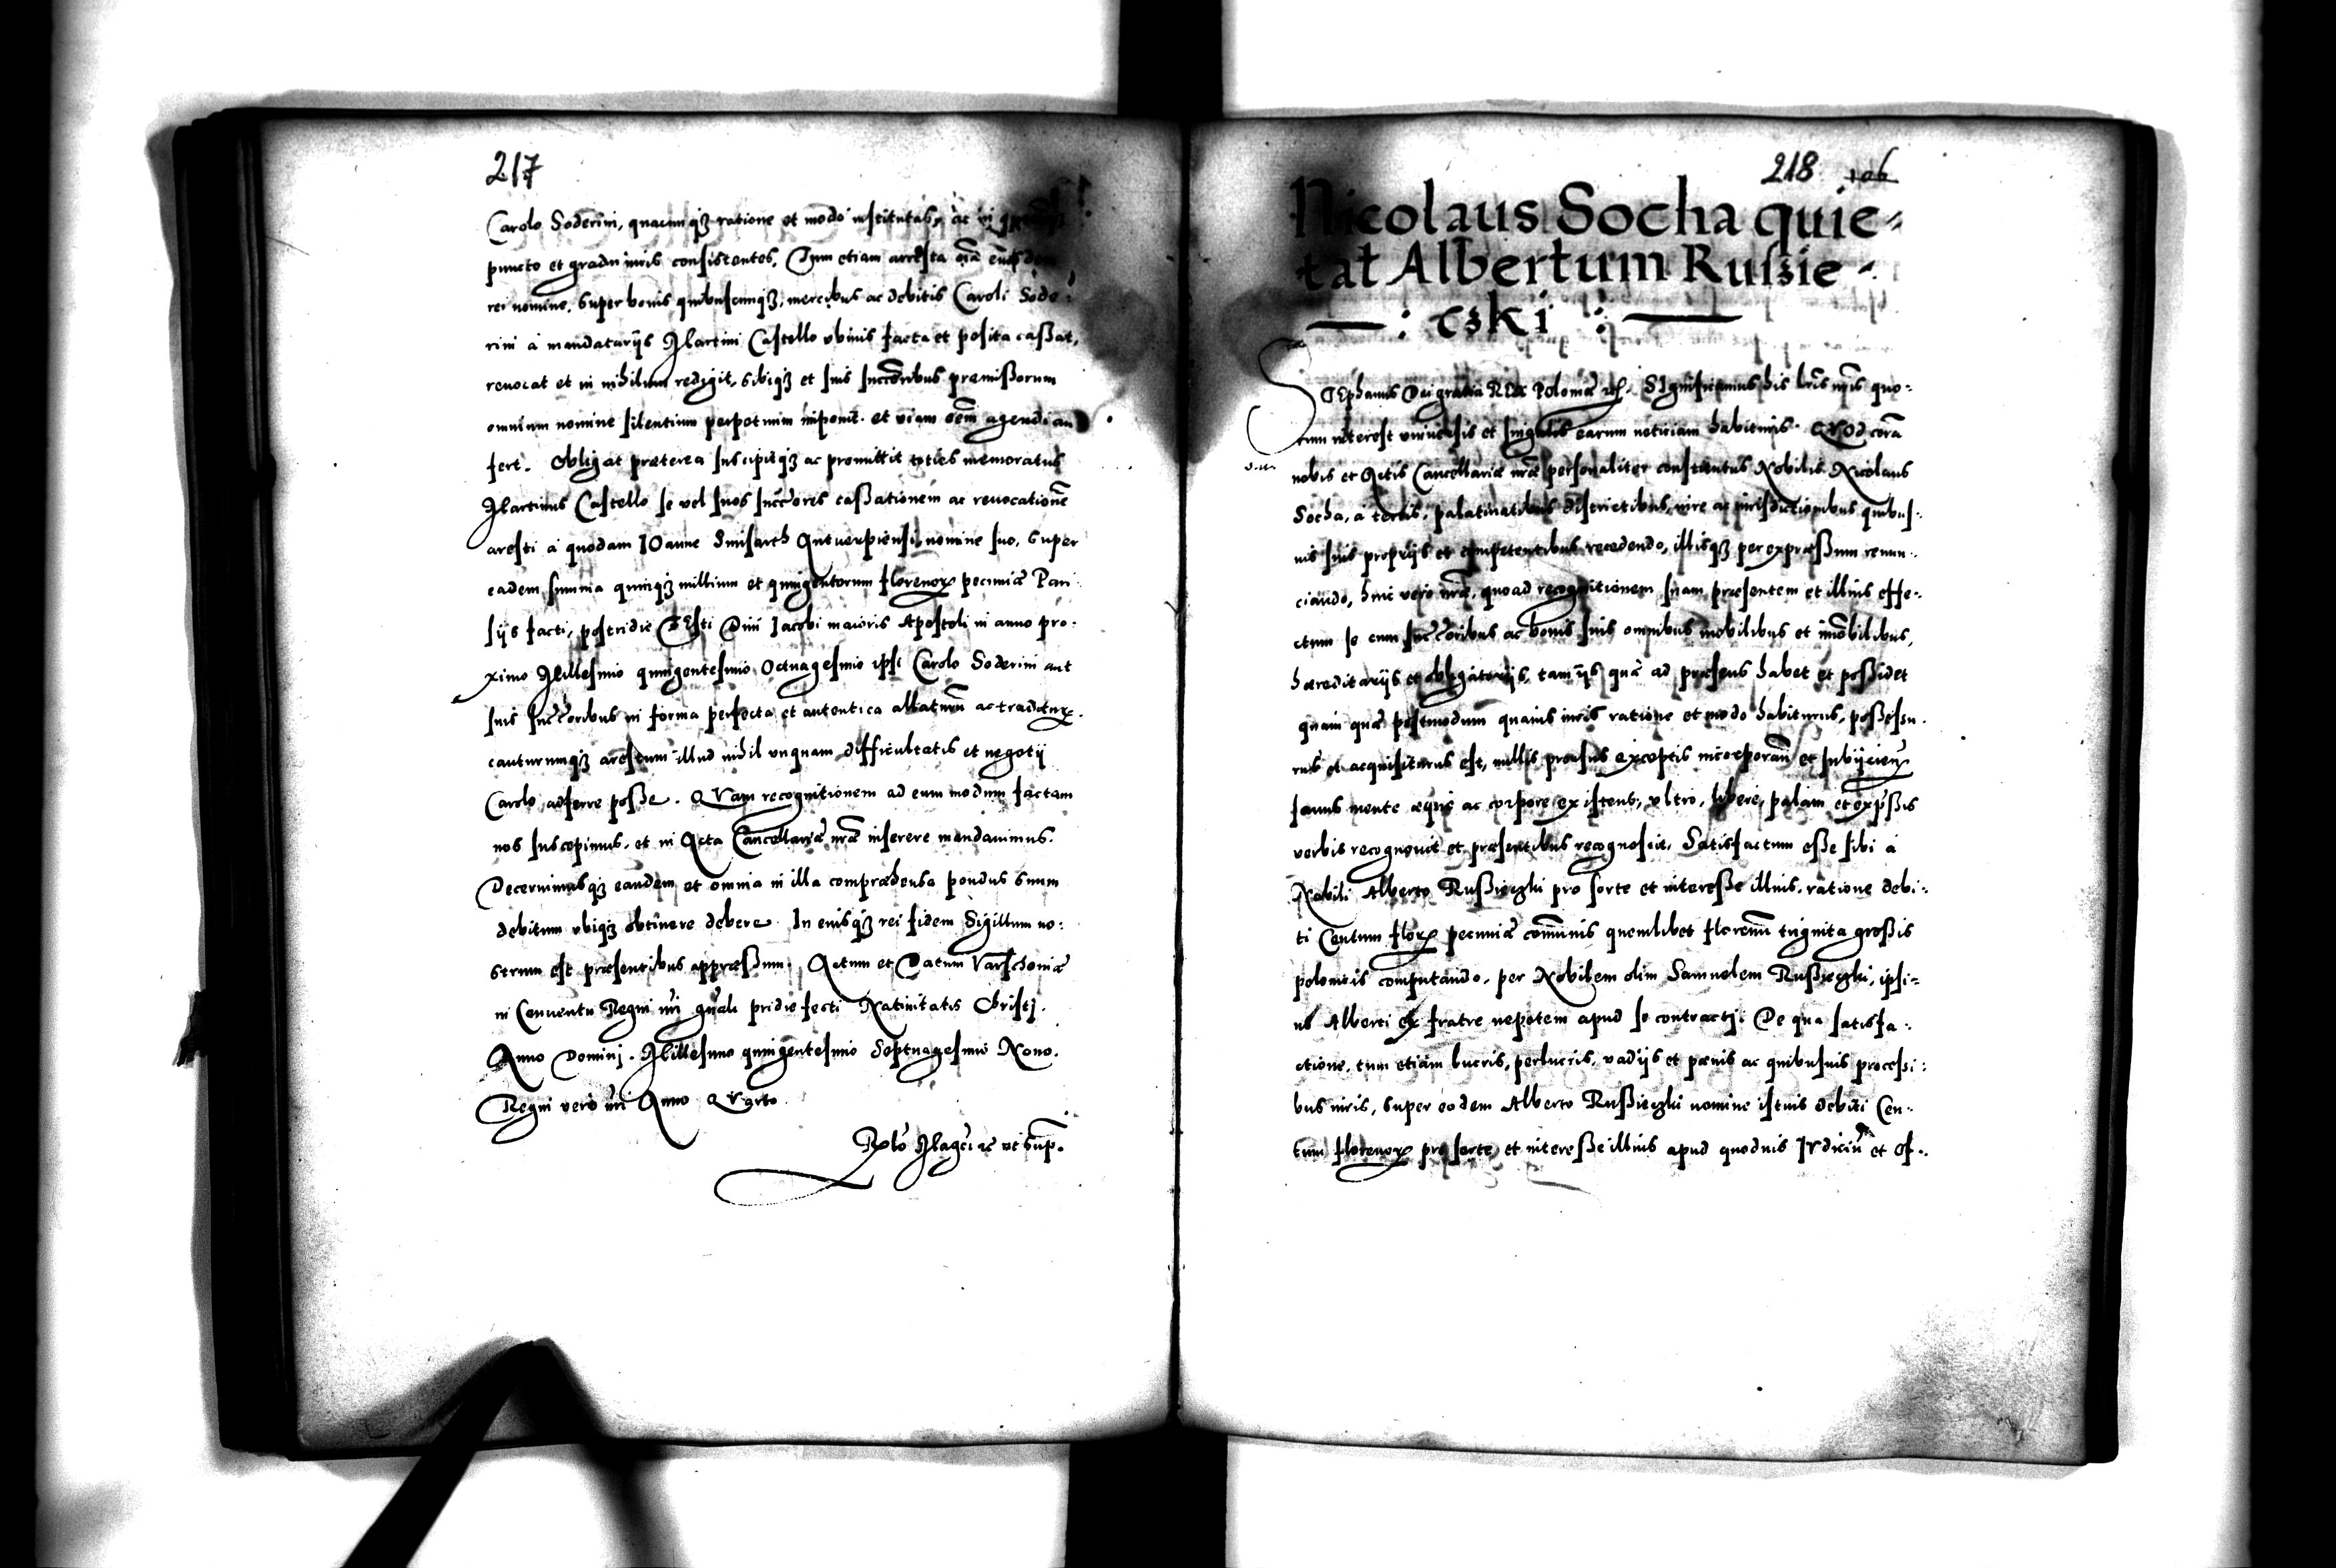 217
Carolo Soderini, quacunqȝ ratione et modo institutas, ac in
puncto et gradu iuris consistentes, Tum etiam arresta oīa
rei nomine, super bonis quibuscunqȝ, mercibus ac debitis Caroli Sode:
rini à mandatarijs Martini Castello vbiuis facta et posita caßat,
reuocat et in nihilum redigit, sibiqȝ et suis succōribus præmißorum
omnium nomine silentium perpetuum imponit. et viam oēm agendi au
fert. Obligat præterea suscipitqȝ ac promittit toties memoratus
Martinus Castello se vel suos succ̄ores caßationem ac reuocationē
aresti à quodam IOanne Smisarth Antuerpiensi, nomine suo, super
eadem summa quinqȝ millium et quingentorum florenorꝝ pecuniæ Pari
sijs facti, postridie FEsti Diui Iacobi maioris Apostoli in anno pro:
ximo Millesimo quingentesimo Octuagesimo ipsi Carolo Soderini aut
suis succ̄oribus in forma perfecta et autentica allaturū ac traditurꝝ.
cauturumqȝ arestum illud nihil vnquam difficultatis et negotij
Carolo adferre poße. QVam recognitionem ad eum modum factam
nos suscepimus, et in Acta Cancellariæ nr̄æ inserere mandauimus.
Decernimusqȝ eandem et omnia in illa compræhensa pondus suum
debitum vbiqȝ obtinere debere. In cuiusqȝ rei fidem Sigillum no:
strum est præsentibus appræßum. Actum et Datum Varschouiæ
in Conuentu Regni nr̄i gn̄ali pridie festi Natiuitatis Christj.
Anno Dominj. Millesimo quingentesimo Septuagesimo Nono.
Regni verò nr̄i Anno QVarto.
Rel̄o Maḡci etc̄ vt sup̄.
218 106
Nicolaus Socha quie-
tat Albertum Rusſzie-
: czki :
STEphanus Dei gratia REx Poloniæ etc̄. SIgnificamus his l̄ris nr̄is quo:
rum interest vniuersis et singulis earum noticiam habituris. QVOd corā
nobis et Actis Cancellariæ nr̄æ personaliter constitutus Nobilis Nicolaus
Socha, à terris, palatinatibus districtibus, iure ac iurisdictionibus quibus:
uis suis proprijs et competentibus recedendo, illisqȝ per expræßum renun:
ciando, huic verò nr̄æ, quoad recognitionem suam præsentem et illius effe:
ctum se cum succ̄oribus ac bonis suis omnibus mobilibus et imōbilibus,
hæreditarijs et obligatorijs, tam ijs quæ ad præsens habet et poßidet
quam quæ postmodum quauis iuris ratione et modo habiturus, poßeßu:
rus et acquisiturus est, nullis prorsus exceptis incorporan̄ et subijcien̄
sanus mente æquè ac corpore existens, vltro, liberè, palàm et exp̄ßis
verbis recognouit et præsentibus recognoscit, Satisfactum eße sibi à
Nobili Alberto Rußieczki pro sorte et intereße illius, ratione debi:
ti Centum florꝝ pecuniæ com̄unis quemlibet florenū triginta großis
polonicis computando, per Nobilem olim Samuelem Rußieczki, ipsi=
us Alberti ex fratre nepotem apud se contractj. De qua satisfa:
ctione, tum etiam lucris, perlucris, vadijs et pænis ac quibusuis proceßi:
bus iuris, super eodem Alberto Rußieczki nomine istius debiti Cen:
tum florenorꝝ pro sorte et intereße illius apud quoduis IVdiciū et of: